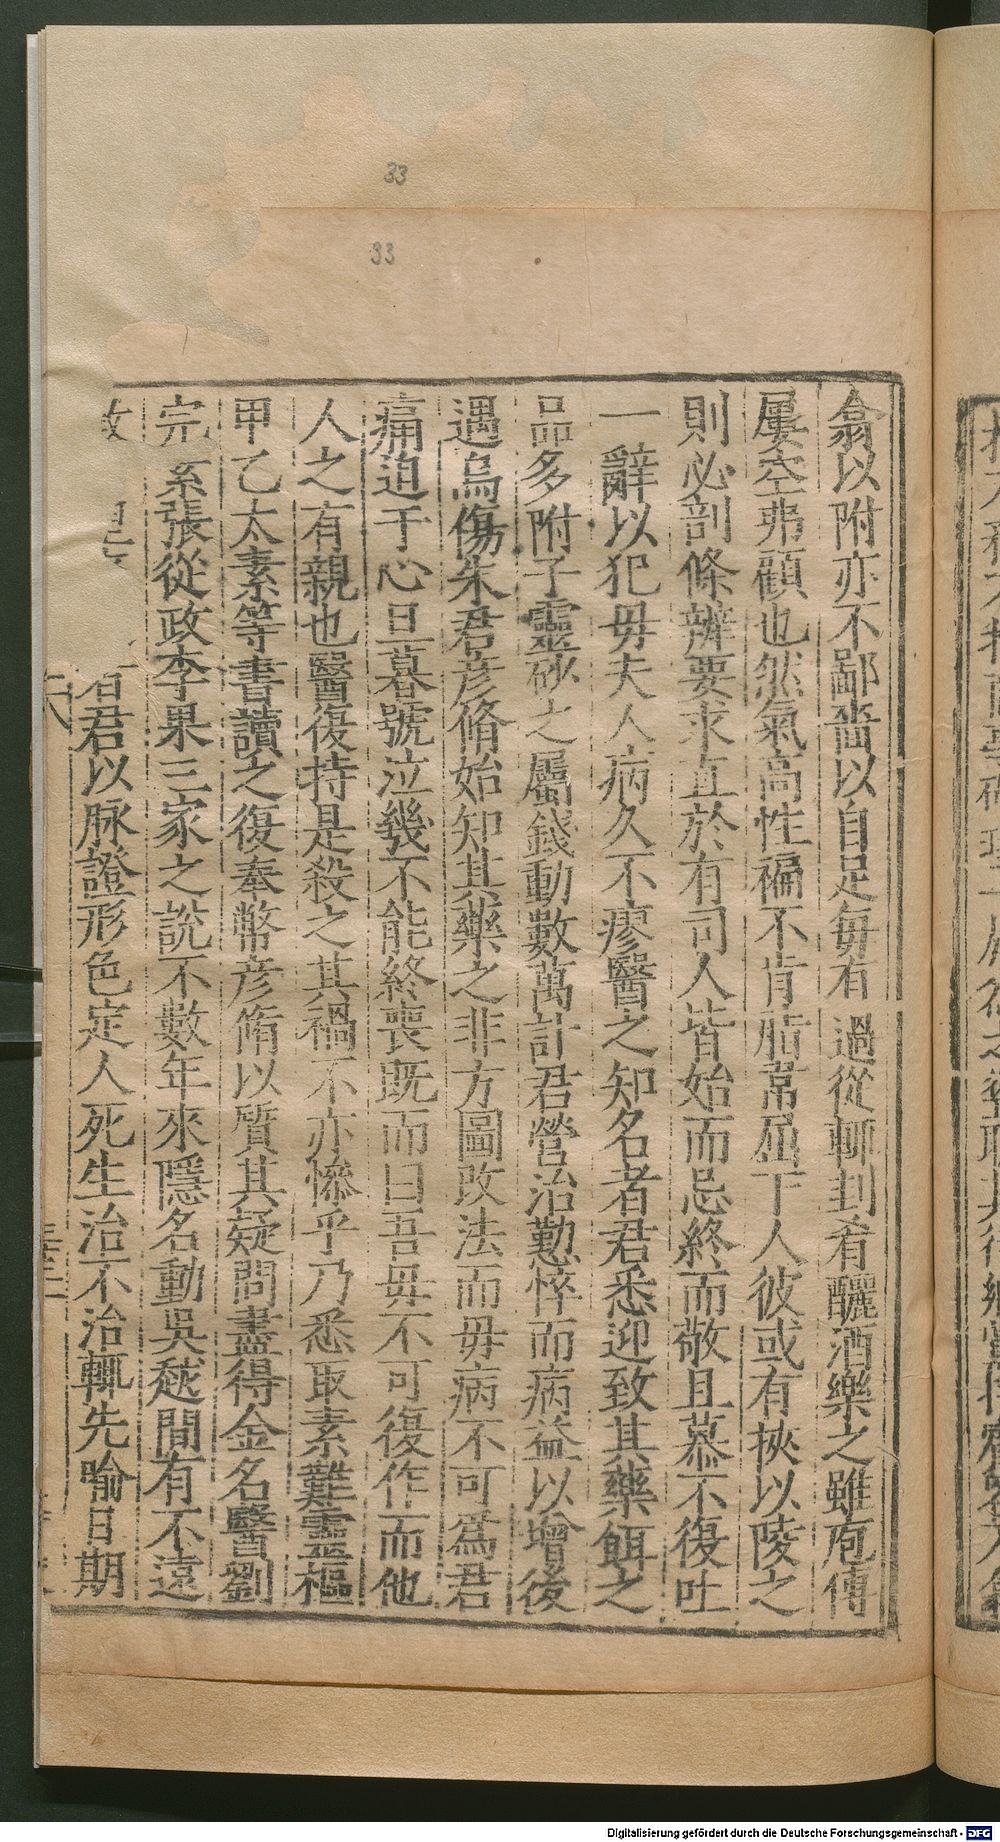 33
33
翕以附亦不鄙嗇以自足每有過從輒刲肴釃酒樂之雖庖傳
屢空弗顧也然氣高性褊不肯脂韋屈下人彼或有挾以陵之
則必剖條辨要求直於有司人皆始而忌終而敬且慕不復吐
一辭以犯毋夫人病久不瘳醫之知名者君悉迎致其藥餌之
品多附子靈砂之屬錢動數萬計君營治懃悴而病益以增後
遇烏傷朱君彦脩始知其藥之非方圖改法而毋病不可爲君
痛迫于心旦暮號泣㡬不能終喪既而曰吾毋不可復作而他
人之有親也醫復持是殺之其禍不亦慘乎乃悉取素難靈樞
甲乙太素等書讀之復奉幣彦脩以質其疑問盡得金名醫劉
完素張從政李果三家之説不數年來隱名動吳越間有不遠
者君以脉證形色定人死生治不治輒先喻日期
Digitalisierung gefördert durch die Deutsche Forschungsgemeinschaft - DFG